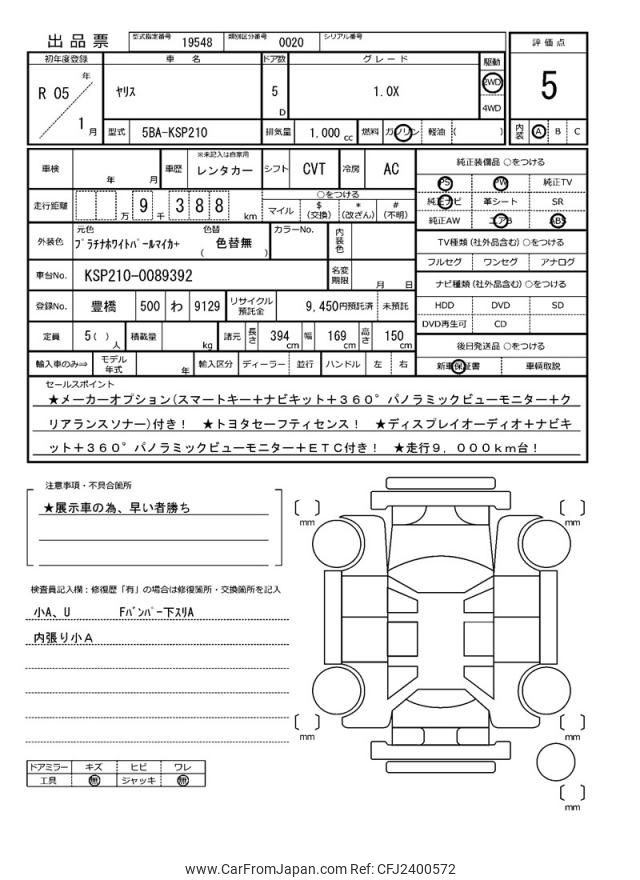 出品票 型式指定番号 19548 類別区分番号 0020 シリアル番号
評価点
5
初年度登録 車名 ドア数 グレード 駆動
R 05 年 1 月
ヤリス 5 D 1.0X 2WD 4WD
型式 5BA-KSP210 排気量 1.000 cc 燃料 ガソリン 軽油 ( )
内装 A B C
車検 年 月 車歴 ※未記入は自家用 レンタカー シフト CVT 冷房 AC
純正装備品 ○をつける
PS PW 純正TV
純正ナビ 革シート SR
純正AW エアB ABS
走行距離 万 9 千 3 8 8 km
○をつける
マイル $(交換) *(改ざん) #(不明)
外装色 元色 プラチナホワイトパールマイカ+ 色替 ( 色替無 ) カラーNo. 内装色
TV種類(社外品含む) ○をつける
フルセグ ワンセグ アナログ
車台No. KSP210-0089392 名変期限 月 日
ナビ種類(社外品含む) ○をつける
HDD DVD SD
DVD再生可 CD
登録No. 豊橋 500 わ 9129 リサイクル預託金 9,450円預託済 未預託
定員 5( )人 積載量 kg 諸元 長さ 394 cm 幅 169 cm 高さ 150 cm
後日発送品 ○をつける
新車保証書 車輌取説
輸入車のみ⇒ モデル年式 年 輸入区分 ディーラー 並行 ハンドル 左 右
セールスポイント
★メーカーオプション(スマートキー+ナビキット+360°パノラミックビューモニター+ク
リアランスソナー)付き! ★トヨタセーフティセンス! ★ディスプレイオーディオ+ナビキ
ット+360°パノラミックビューモニター+ETC付き! ★走行9,000km台!
注意事項・不具合箇所
★展示車の為、早い者勝ち
検査員記入欄:修復歴「有」の場合は修復箇所・交換箇所を記入
小A、U Fバンパー下スリA
内張り小A
ドアミラー キズ ヒビ ワレ
工具 無 ジャッキ 無
mm
mm
mm
mm
mm
www.CarFromJapan.com Ref: CFJ2400572